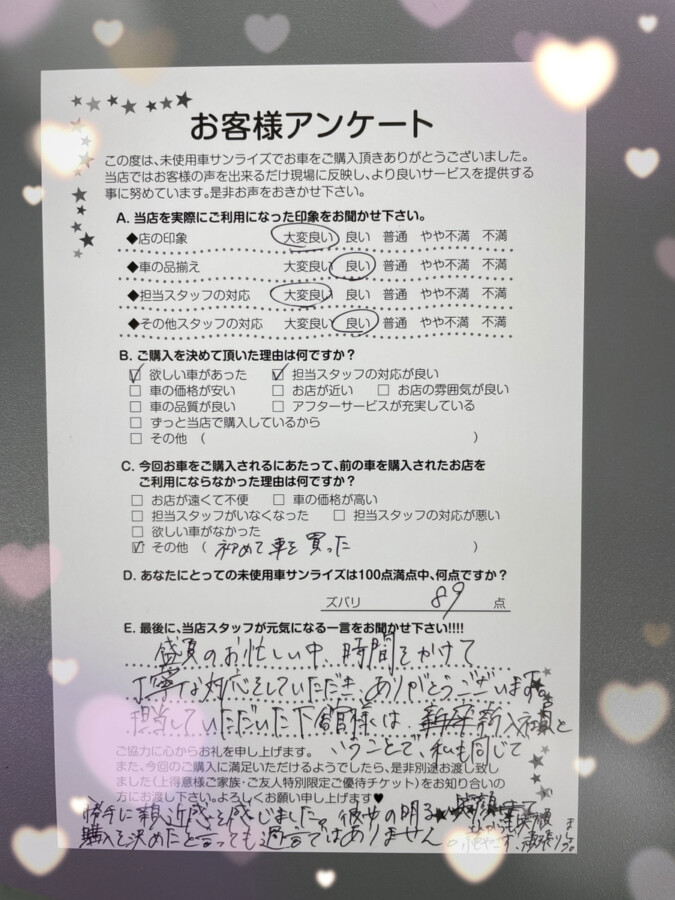 お客様アンケート
この度は、未使用車サンライズでお車をご購入頂きありがとうございました。
当店ではお客様の声を出来るだけ現場に反映し、より良いサービスを提供する
事に努めています。是非お声をおきかせ下さい。
A. 当店を実際にご利用になった印象をお聞かせ下さい。
◆店の印象 大変良い 良い 普通 やや不満 不満
◆車の品揃え 大変良い 良い 普通 やや不満 不満
◆担当スタッフの対応 大変良い 良い 普通 やや不満 不満
◆その他スタッフの対応 大変良い 良い 普通 やや不満 不満
B. ご購入を決めて頂いた理由は何ですか?
☑ 欲しい車があった ☑ 担当スタッフの対応が良い
□ 車の価格が安い □ お店が近い □ お店の雰囲気が良い
□ 車の品質が良い □ アフターサービスが充実している
□ ずっと当店で購入しているから
□ その他 ( )
C. 今回お車をご購入されるにあたって、前の車を購入されたお店を
ご利用にならなかった理由は何ですか?
□ お店が遠くて不便 □ 車の価格が高い
□ 担当スタッフがいなくなった □ 担当スタッフの対応が悪い
□ 欲しい車がなかった
☑ その他 ( 初めて車を買った )
D. あなたにとっての未使用車サンライズは100点満点中、何点ですか?
ズバリ 89 点
E. 最後に、当店スタッフが元気になる一言をお聞かせ下さい!!!!
盛夏のお忙しい中、時間をかけて
丁寧な対応をしていただき、ありがとうございます。
担当していただいた下舘様は 新入社員と
いうことで、私も同じて
ご協力に心からお礼を申し上げます。
また、今回のご購入に満足いただけるようでしたら、是非別途お渡し致し
ました(上得意様ご家族・ご友人特別限定ご優待チケット)をお知り合いの
方にお渡し下さい。よろしくお願い申し上げます♥
勝手に親近感を感じました。彼女の明る
購入を決めたと言っても過言ではありません。